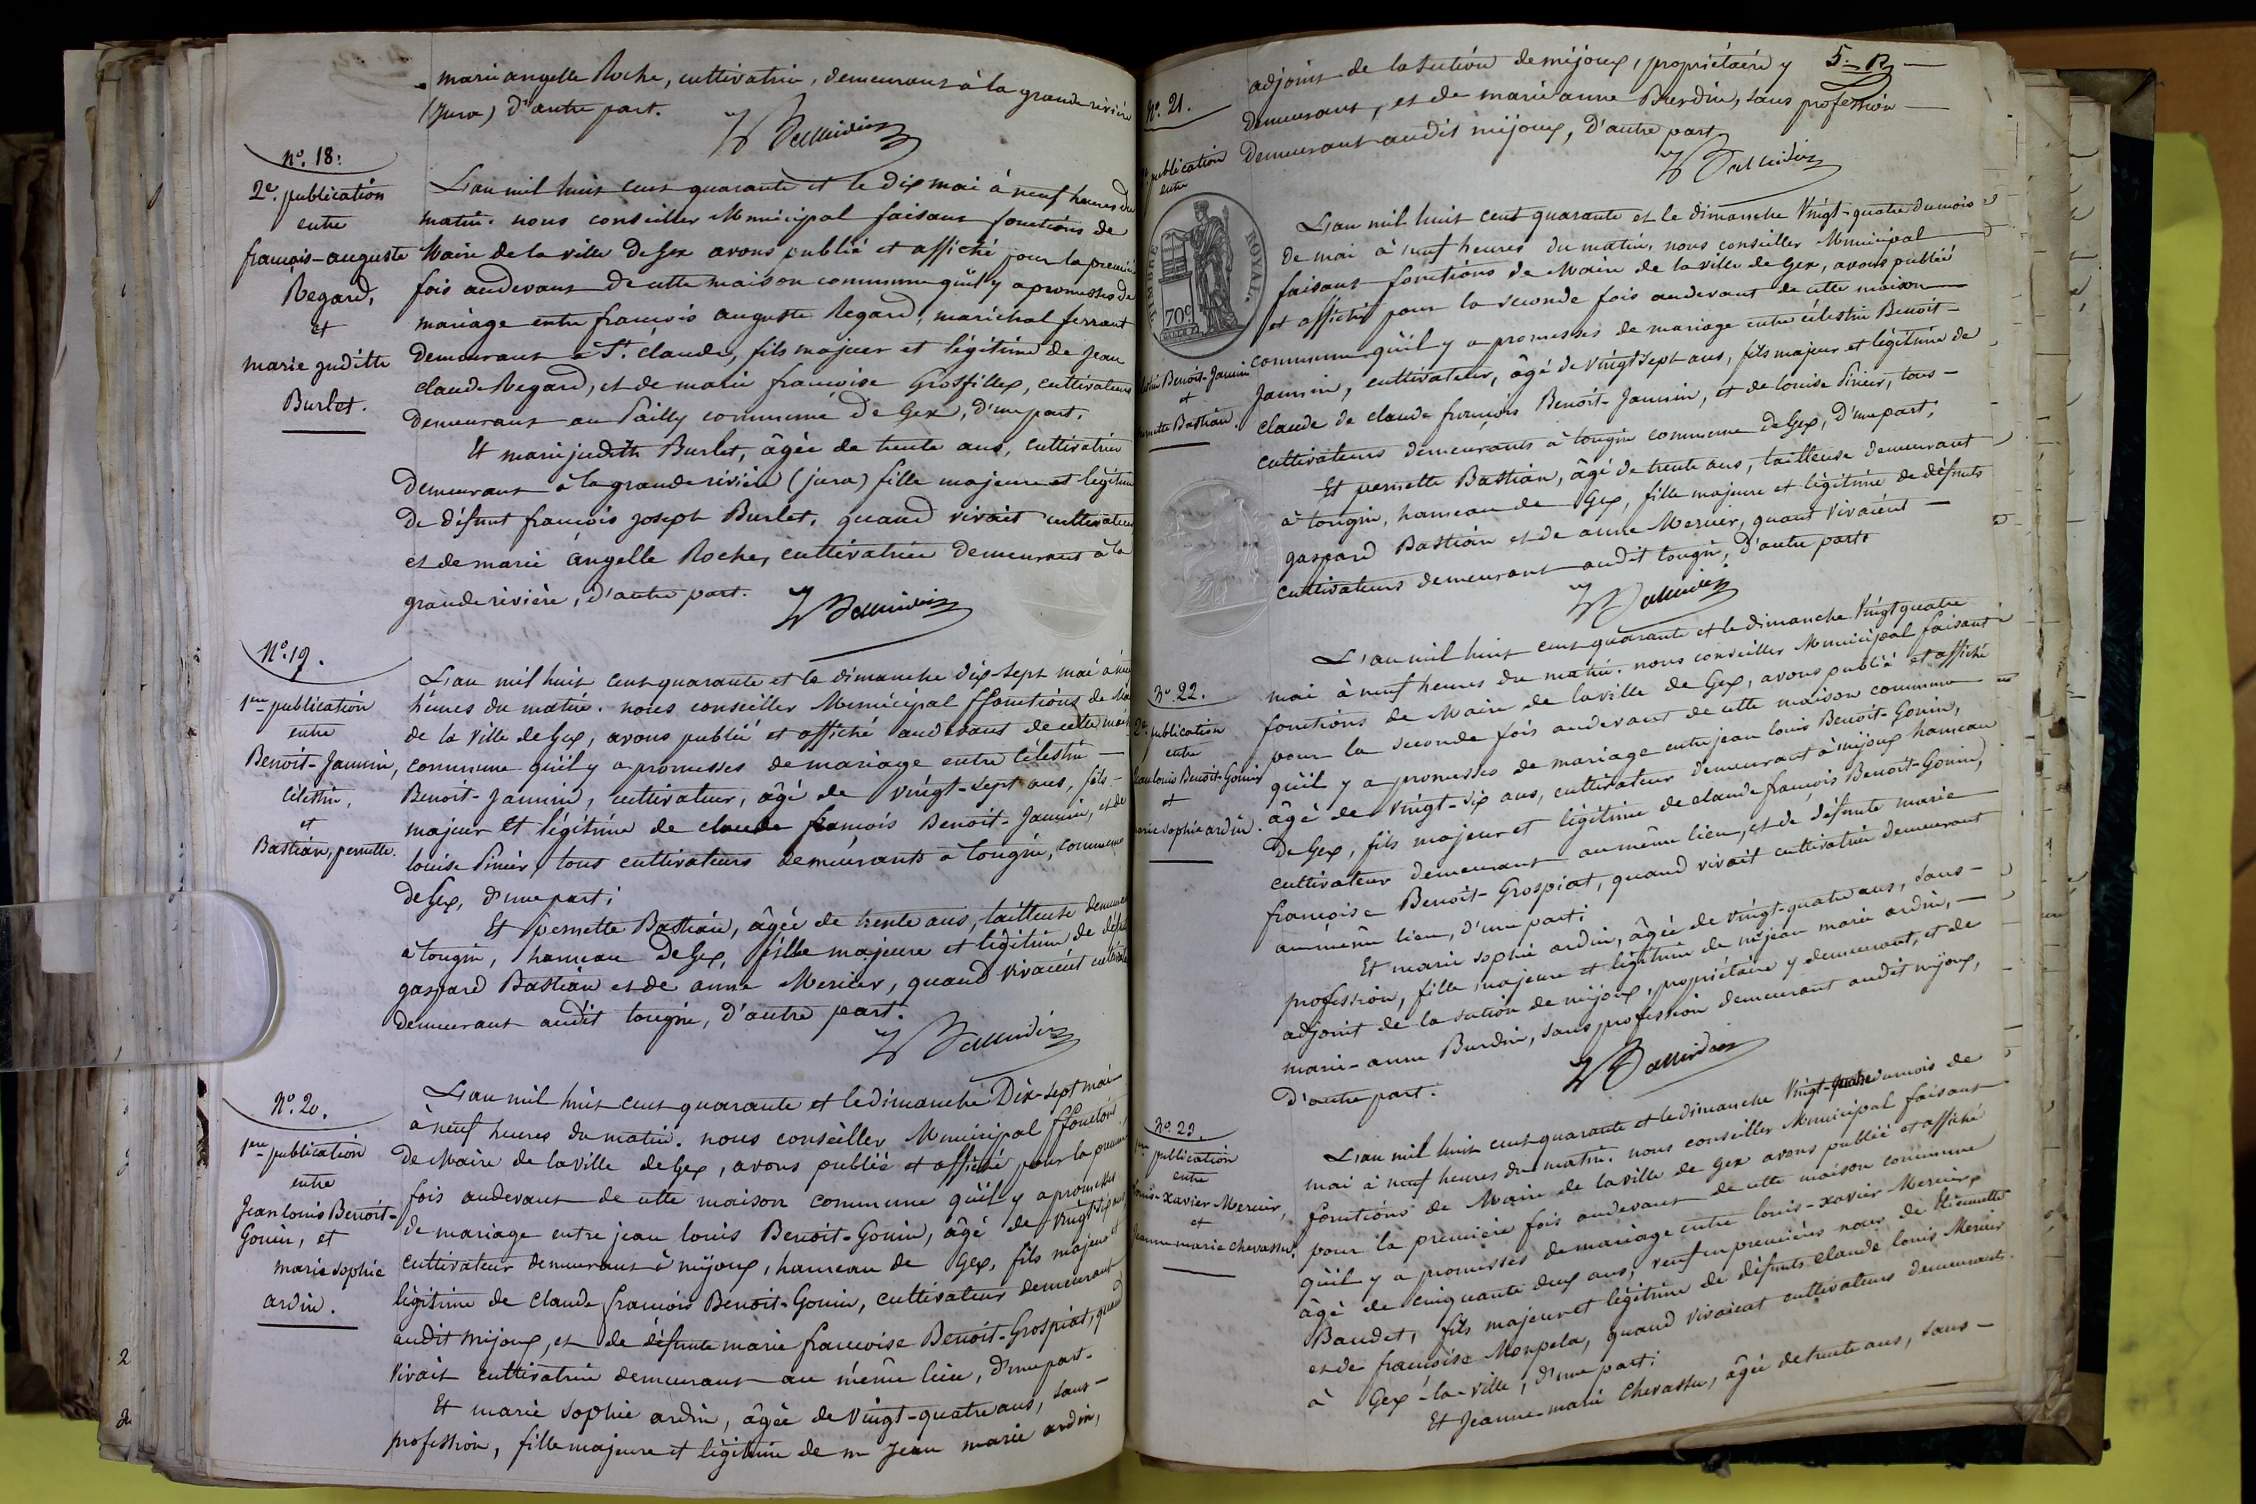 marie angelle Roche, cultivatrice, demeurant à la grande rivière
(Jura) d'autre part.
N.o 18:
2.e publication
entre
françois-auguste
Regard,
et
marie judith
Burlet.
L'an mil huit cent quarante et le dix mai à neuf heures du
matin. nous conseiller Municipal faisant fonctions de
Maire de la ville de Gex avons publié et affiché pour la première
fois audevant de cette maison commune qu'il y a promesses de
mariage entre françois auguste Regard, maréchal ferrant
demeurant à St. claude, fils majeur et légitime de Jean
claude Regard, et de marie françoise Grosfillex, cultivateurs
demeurant au Pailly commune de Gex, d'une part.
Et marie judith Burlet, âgée de trente ans, cultivatrice
demeurant à la grande rivière (jura) fille majeure et légitime
de défunt françois joseph Burlet, quand vivait cultivateur
et de marie angelle Roche, cultivatrice demeurant à la
grande rivière, d'autre part.
N.o 19.
1ere publication
entre
Benoit-Jannin,
Célestin,
et
Bastian, pernette.
L'an mil huit cent quarante et le dimanche dix-sept mai à neuf
heures du matin. nous conseiller Municipal ffonctions de
de la Ville de Gex, avons publié et affiché audevant de cette
commune qu'il y a promesses de mariage entre Célestin
Benoit-Jannin, cultivateur, âgé de vingt-sept ans, fils
majeur et légitime de claude françois Benoit-Jannin, et de
louise Pinier, tous cultivateurs demeurants à tougin, commune
de Gex, d'une part;
Et pernette Bastian, âgée de trente ans, tailleuse
à tougin, hameau de Gex, fille majeure et légitime de
gaspard Bastian et de anne Mercier, quand vivaient
demeurant audit tougin, d'autre part.
N.o 20.
1ere publication
entre
Jean louis Benoit-
Gonin, et
marie sophie
ardin.
L'an mil huit cent quarante et le dimanche Dix-sept mai
à neuf heures du matin. nous conseiller Municipal ffonctions
de Maire de la ville de Gex, avons publié et affiché pour la première
fois audevant de cette maison commune qu'il y a promesses
de mariage entre jean louis Benoit-Gonin, âgé de vingt six ans,
cultivateur demeurant à mijoux, hameau de Gex, fils majeur et
légitime de claude françois Benoit-Gonin, cultivateur demeurant
audit mijoux, et de défunte marie françoise Benoit-Grospiat, quand
vivait cultivatrice demeurant au même lieu, d'une part.
Et marie sophie ardin, âgée de vingt-quatre ans, sans
profession, fille majeure et légitime de m Jean marie ardin,
adjoint de la section de mijoux, propriétaire y
demeurant, et de marie anne Burdin, sans profession
demeurant audit mijoux, d'autre part
N.o 21.
publication
entre
TIMBRE ROYAL.
70c
Benoit-Jannin
et
Bastian.
L'an mil huit cent quarante et le dimanche vingt-quatre du mois
de mai à neuf heures du matin, nous conseiller Municipal
faisant fonctions de Maire de la ville de Gex, avons publié
et affiché pour la seconde fois audevant de cette maison
commune qu'il y a promesses de mariage entre célestin Benoit-
Jannin, cultivateur, âgé de vingt sept ans, fils majeur et légitime de
claude de claude françois Benoit-Jannin, et de louise Pinier, tous
cultivateurs demeurants à tougin commune de Gex, d'une part;
Et pernette Bastian, âgé de trente ans, tailleuse demeurant
à tougin, hameau de Gex, fille majeure et légitime de défunts
gaspard Bastian et de anne Mercier, quant vivaient
cultivateurs demeurant audit tougin, d'autre part.
N.o 22.
2e. publication
entre
Jean louis Benoit-Gonin
et
marie sophie ardin.
L'an mil huit cent quarante et le dimanche vingt quatre
mai à neuf heures du matin. nous conseiller Municipal faisant
fonctions de Maire de la ville de Gex, avons publié et affiché
pour la seconde fois audevant de cette maison commune
qu'il y a promesses de mariage entre jean louis Benoit-Gonin,
âgé de vingt-six ans, cultivateur demeurant à mijoux hameau
de Gex, fils majeur et légitime de claude françois Benoit-Gonin,
cultivateur demeurant au même lieu, et de défunte marie
françoise Benoit-Grospiat, quand vivait cultivatrice demeurant
au même lieu, d'une part;
Et marie sophie ardin, âgée de vingt-quatre ans, sans
profession, fille majeure et légitime de m jean marie ardin,
adjoint de la section de mijoux, propriétaire y demeurant, et de
marie-anne Burdin, sans profession demeurant audit mijoux,
d'autre part.
N.o 23.
publication
entre
louis-xavier Mercier,
et
Jeanne marie chevassu.
L'an mil huit cent quarante et le dimanche vingt-quatre du mois de
mai à neuf heures du matin. nous conseiller Municipal faisant
fonctions de Maire de la ville de Gex avons publié et affiché
pour la première fois audevant de cette maison commune
qu'il y a promesses de mariage entre louis-xavier Mercier,
âgé de cinquante deux ans, veuf en premières noces de Etiennette
Baudet, fils majeur et légitime de défunts claude louis Mercier
et de françoise Monpela, quand vivaient cultivateurs demeurants
à Gex-la-ville, d'une part;
Et Jeanne-marie Chevassu, âgée de trente ans, sans